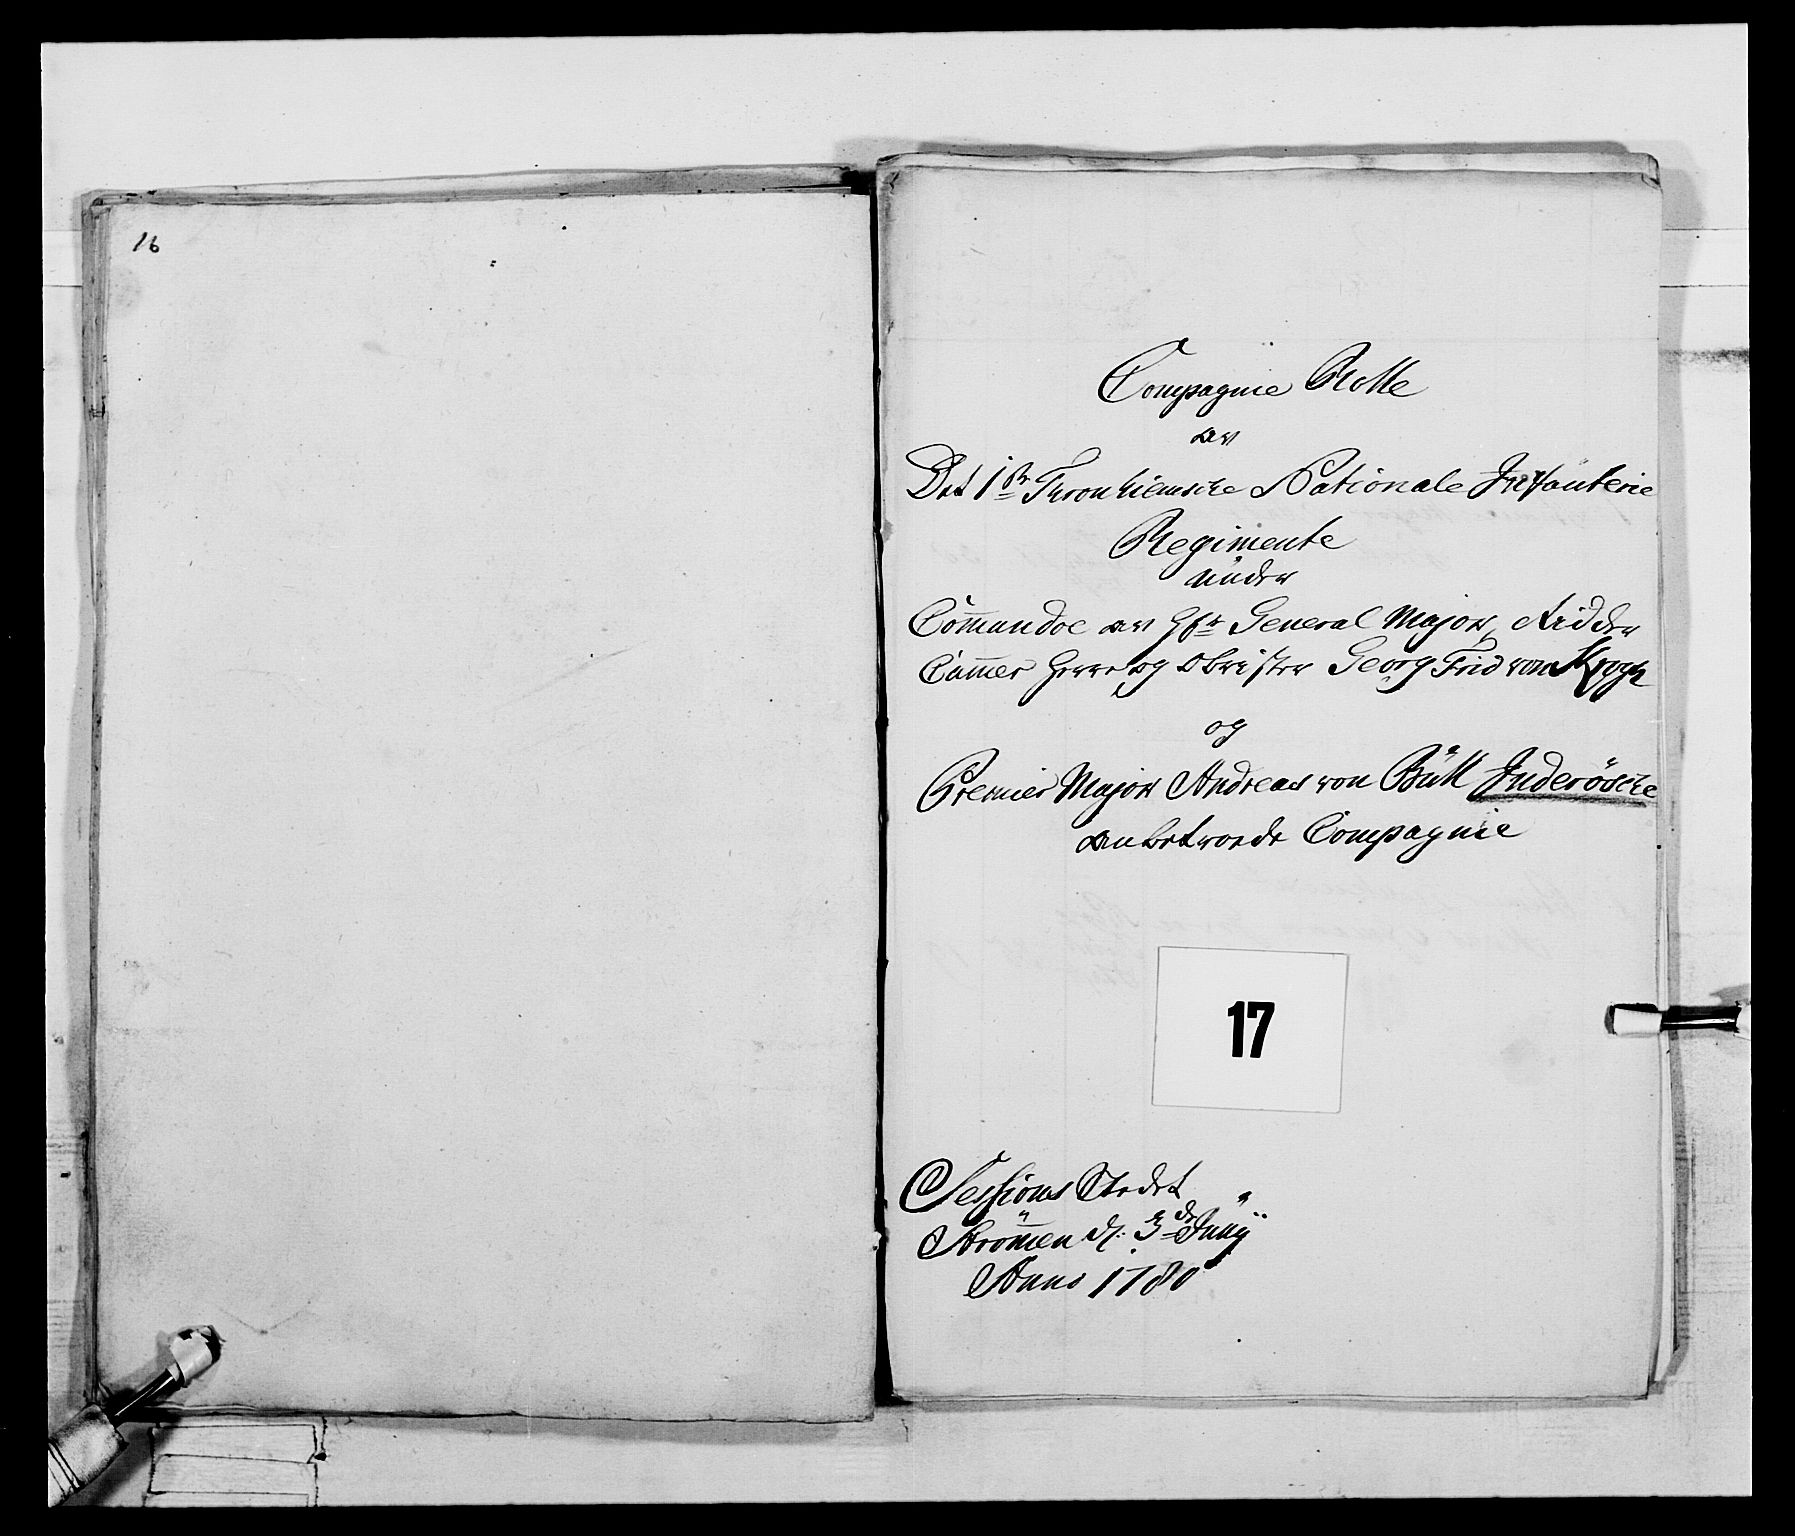 16
Compagnie Rolle
av
Det 1ste Tronhiemsche Nationale Infanterie
Regimente
under
Com̄andoe av Hr General Major, Ridder
Cam̄er Herre og Obrister Georg Frid von Krogh
og
Premier Major Andreas von Bull Inderösche
anbetroede Compagnie
17
Sessions Stedet
Ström̄en d: 3de Juny
Anno 1780